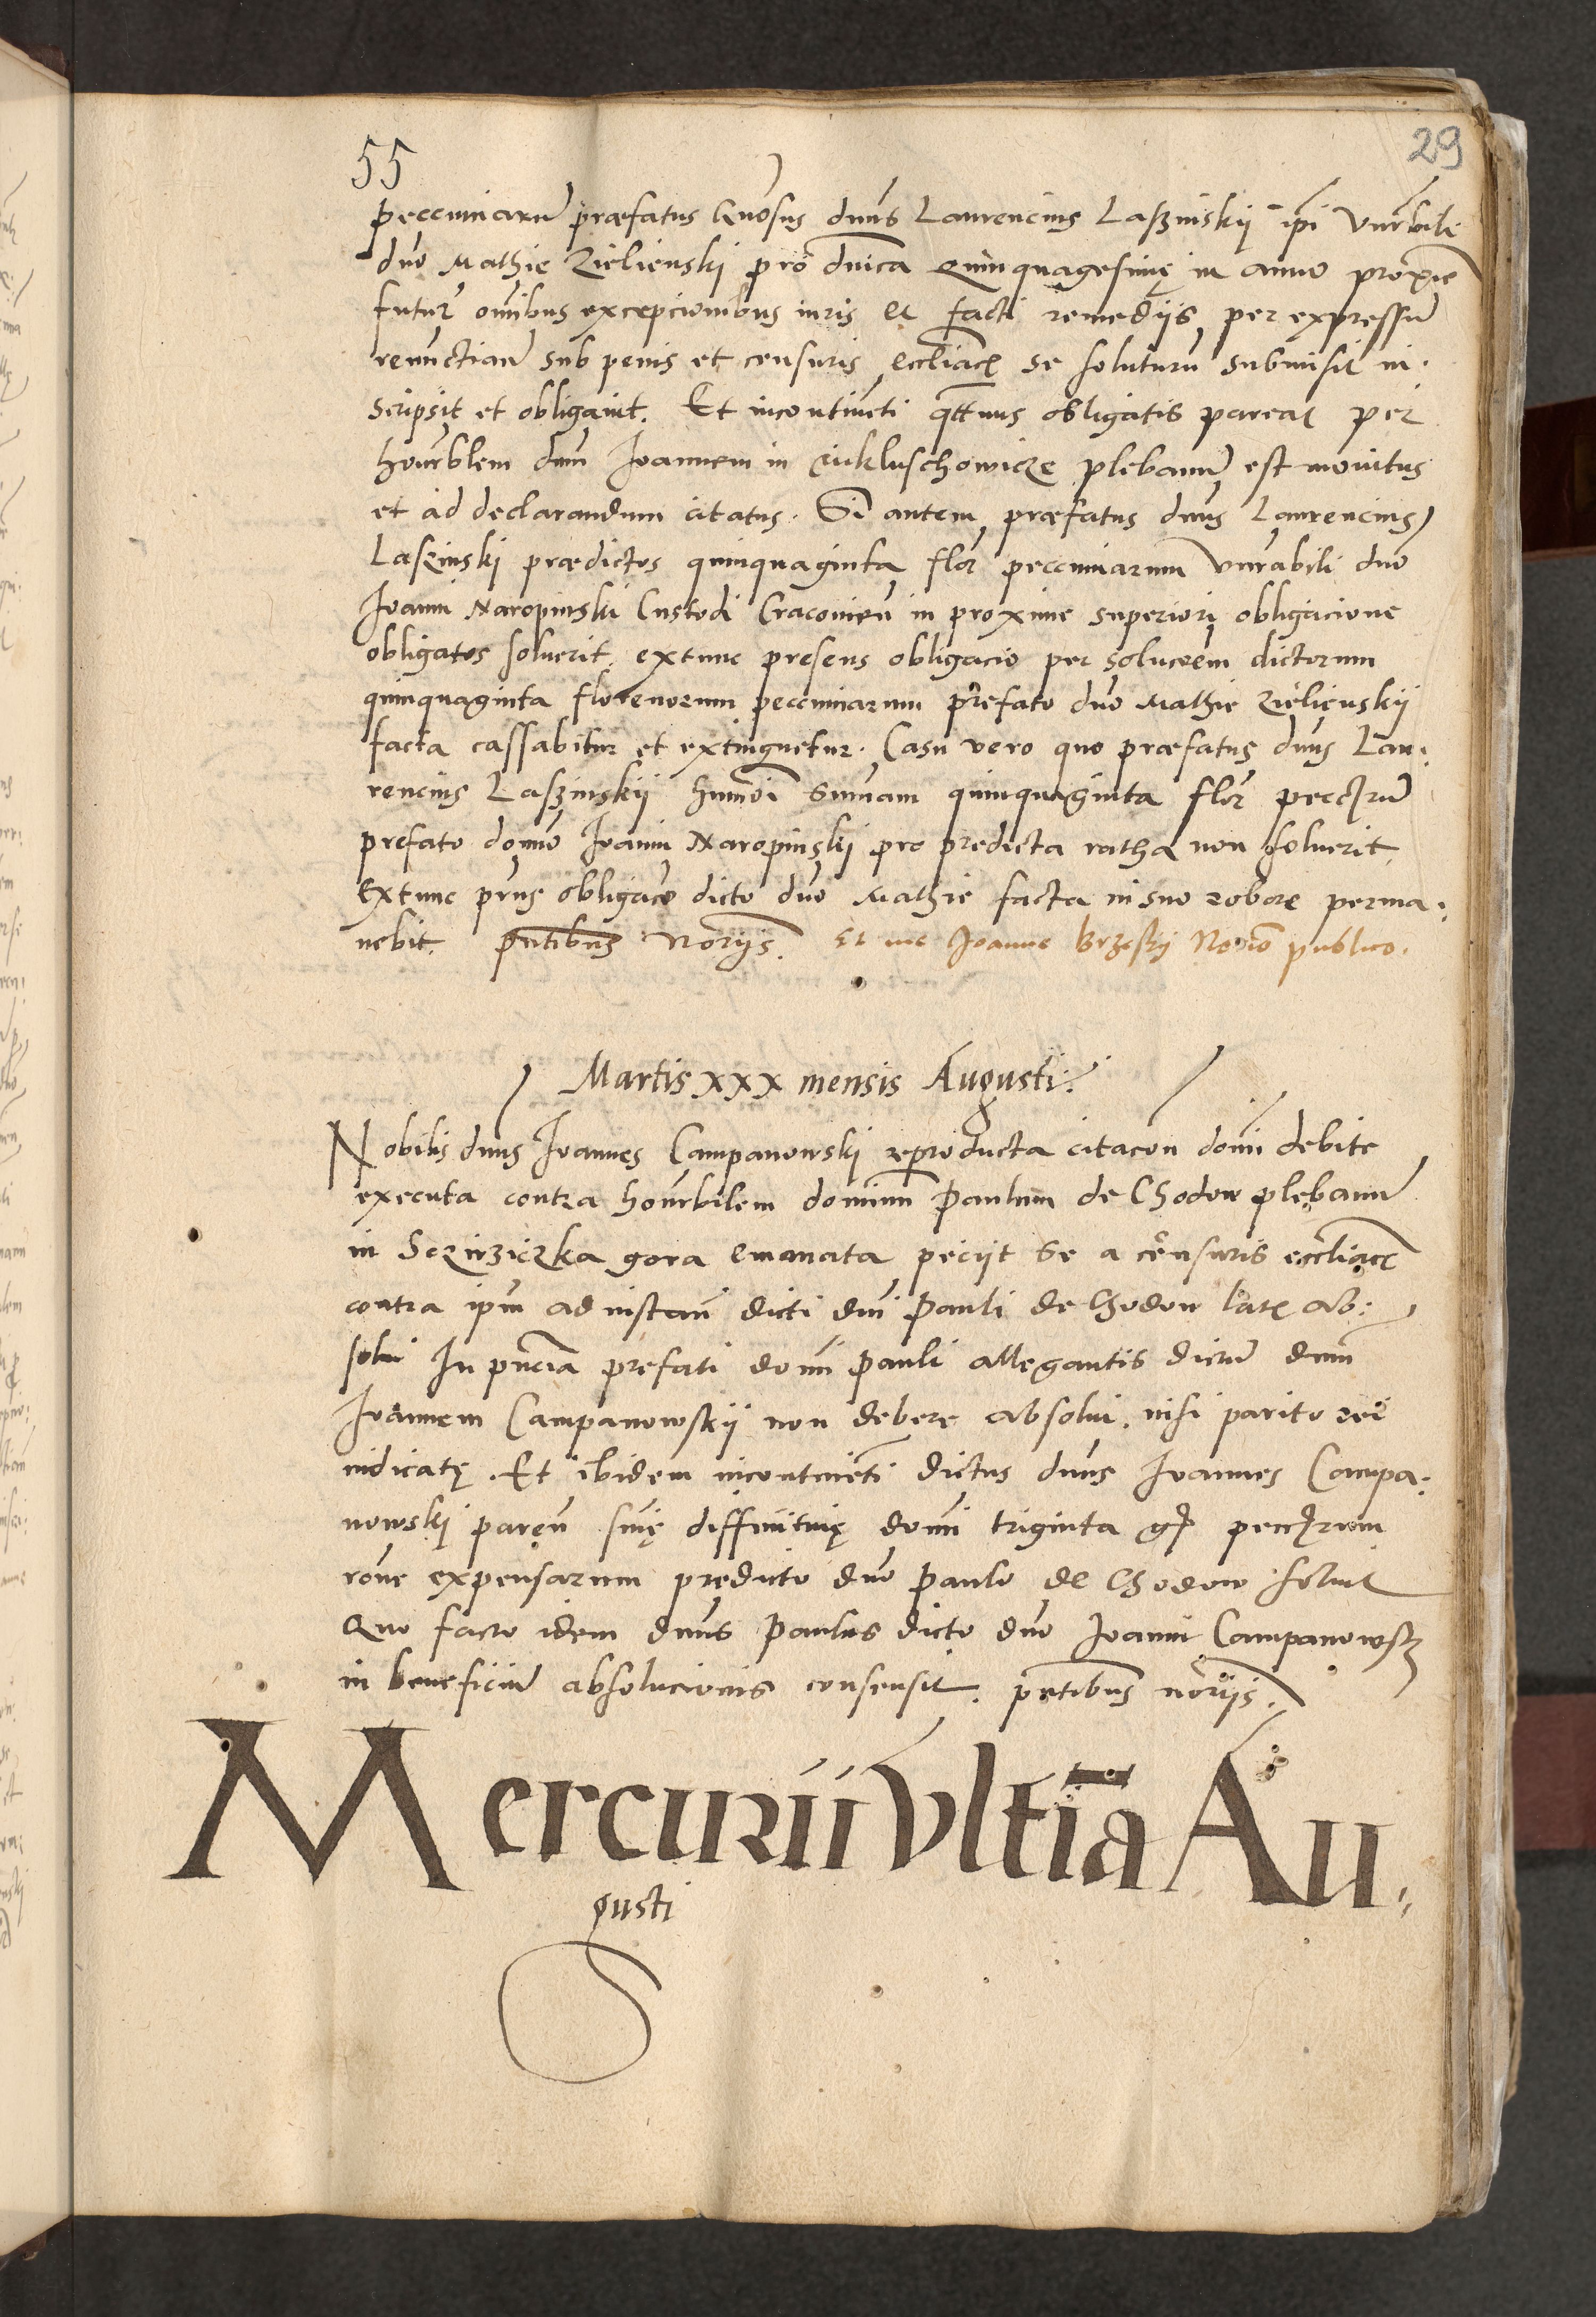 55
29
peccuniarū præfatus Gnosus dnūs Laurencius Laszinskij ipi Vnrbili
dno Mathie Zielienski pro dnica Quinquagesimę in anno proxie
futur omībus excepcionibus iuris et facti remedijs per expressū
renunctian sub penis et censuris eccliac se soluturū submisit in-
scripsit et obligauit. Et incontineti qttnus obligatis pareat per
honrblem dnm Joannem in plebanū est monitus
et ad declarandum citatus. Si autem præfatus dnus Laurencius
Laszinski prædictos quinquaginta flor peccuniarum Vnrabili dno
Joanni Naropinski Custodi Cracouien in proxime superiori obligacione
obligatos soluerit. extunc presens obligacio per solucoem dictorum
quinquaginta florenorum peccuniarum prefato dno Mathie Zielienskij
facta cassabitur et extinguetur. Casu vero quo præfatus dnus Lau-
rencius Laszinskij hmoi summam quinquaginta flor pecctrū
prefato domno Joanni Naropinski pro predicta ratha non soluerit
Extunc prns obligaco dicto dno Mathie facta in suo robore perma-
nebit. pntibus Norijs. Et me Joanne Brzeski Notio publico.
Martis xxx mensis Augusti.
Nobilis dnus Joannes Campanowski reproducta citacon domi debite
executa contra honrbilem dominm Paulum de Chodow plebanū
in gora emanata peciit se a censuris eccliact
contra ipm ad instan dicti dni Pauli de Chodow lat ab-
solui In pncia prefati domi Pauli allegantis dictū dnm
Joannem Campanowskij non debere absolui. nisi parito rei
iudicatę. Et ibidem incontineti dictus dnus Joannes Campa-
nowski paren snię diffinituię domi triginta gr pecctrum
rone expensarum predicto dno Paulo de Chodow soluit
Quo facto idem dnus Paulus dicto dno Joanni Campanowsz
in beneficiū absolucionis consensit. pntibus norijs.
Mercurii Vltia Au-
gusti